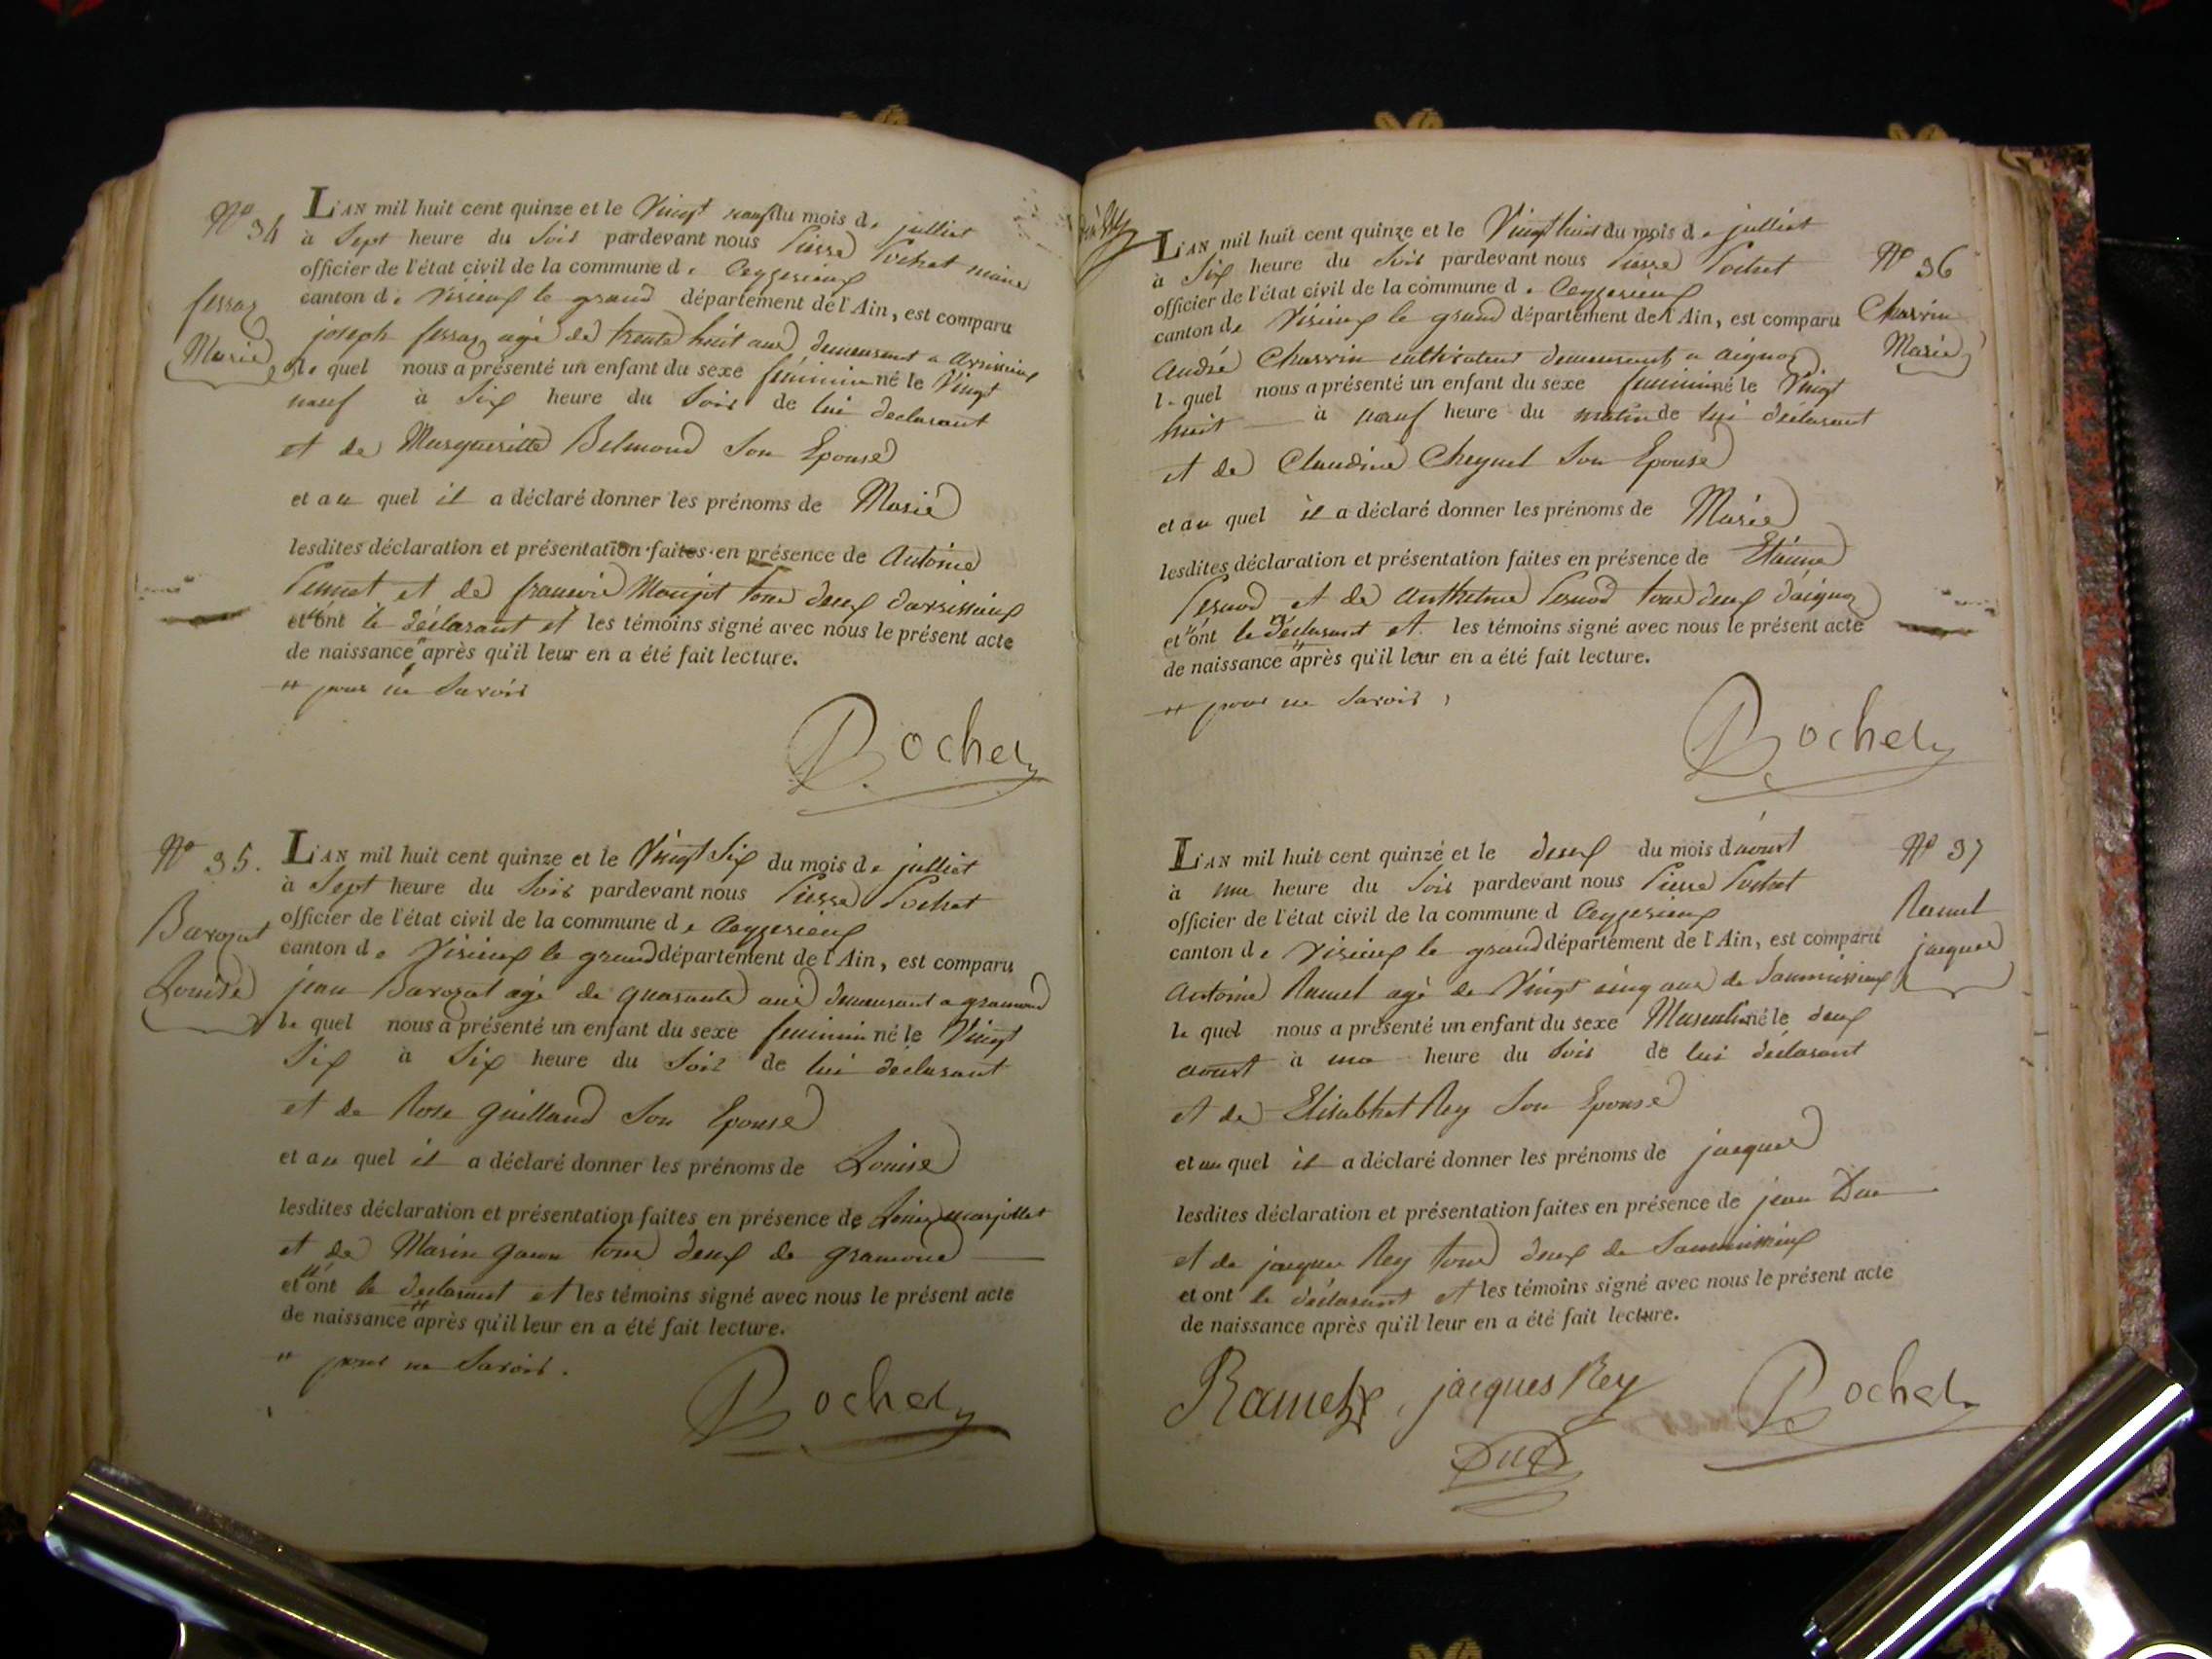 N° 34
L'AN mil huit cent quinze et le Vingt neuf du mois de julliet
à Sept heure du Soir pardevant nous Pierre Pochet maire
officier de l'état civil de la commune de Ceyzerieux
canton de Virieux le grand département de l'Ain, est comparu
ferraz
Marie
joseph ferraz agé de trente huit ans demeurant a avrissieux
le quel nous a présenté un enfant du sexe feminin né le Vingt
neuf à Six heure du Soir de lui déclarant
et de Margueritte Belmond Son Epouse
et au quel il a déclaré donner les prénoms de Marie
lesdites déclaration et présentation faites en présence de Antoine
et de Monjot tous deux
et n'ont le déclarant et les témoins signé avec nous le présent acte
de naissance # après qu'il leur en a été fait lecture.
# pour ne Savoir
Pochet
N° 35.
L'AN mil huit cent quinze et le Vingt Six du mois de julliet
à Sept heure du Soir pardevant nous Pierre Pochet
officier de l'état civil de la commune de Ceyzerieux
canton de Virieux le grand département de l'Ain, est comparu
Barozat
Louise
jean Barozat agé de quarante ans demeurant a gramond
le quel nous a présenté un enfant du sexe feminin né le Vingt
Six à Six heure du Soir de lui déclarant
et de Rose guilland Son Epouse
et au quel il a déclaré donner les prénoms de Louise
lesdites déclaration et présentation faites en présence de Louis marjollet
et de Marin tous deux de gramond
et n'ont le declarant et les témoins signé avec nous le présent acte
de naissance # après qu'il leur en a été fait lecture.
# pour ne Savoir.
Pochet
L'AN mil huit cent quinze et le Vingt huit du mois de julliet
à Six heure du Soir pardevant nous Pierre Pochet
officier de l'état civil de la commune de Ceyzerieux
canton de Virieux le grand département de l'Ain, est comparu
N° 36
Charrin
Marie
André Charrin cultivateur demeurant a aignoz
le quel nous a présenté un enfant du sexe feminin né le Vingt
huit à neuf heure du matin de lui déclarant
et de Claudine Cheynel Son Epouse
et au quel il a déclaré donner les prénoms de Marie
lesdites déclaration et présentation faites en présence de Etienne
Pernod et de Anthelme Pernod tous deux d'aignoz
et n'ont le declarant et les témoins signé avec nous le présent acte
de naissance # après qu'il leur en a été fait lecture.
# pour ne Savoir
Pochet
L'AN mil huit cent quinze et le deux du mois d'aoust
à une heure du Soir pardevant nous Pierre Pochet
officier de l'état civil de la commune d Ceyzerieux
canton de Virieux le grand département de l'Ain, est comparu
N° 37
Ramel
jacques
Antoine Ramel agé de Vingt cinq ans de
le quel nous a présenté un enfant du sexe Masculin né le deux
aoust à une heure du Soir de lui déclarant
et de Elisabhet Rey Son Epouse
et au quel il a déclaré donner les prénoms de jacques
lesdites déclaration et présentation faites en présence de jean Duc
et de jacques Rey tous deux de
et ont le déclarant et les témoins signé avec nous le présent acte
de naissance après qu'il leur en a été fait lecture.
Ramel, jacques Rey Pochet
Duc